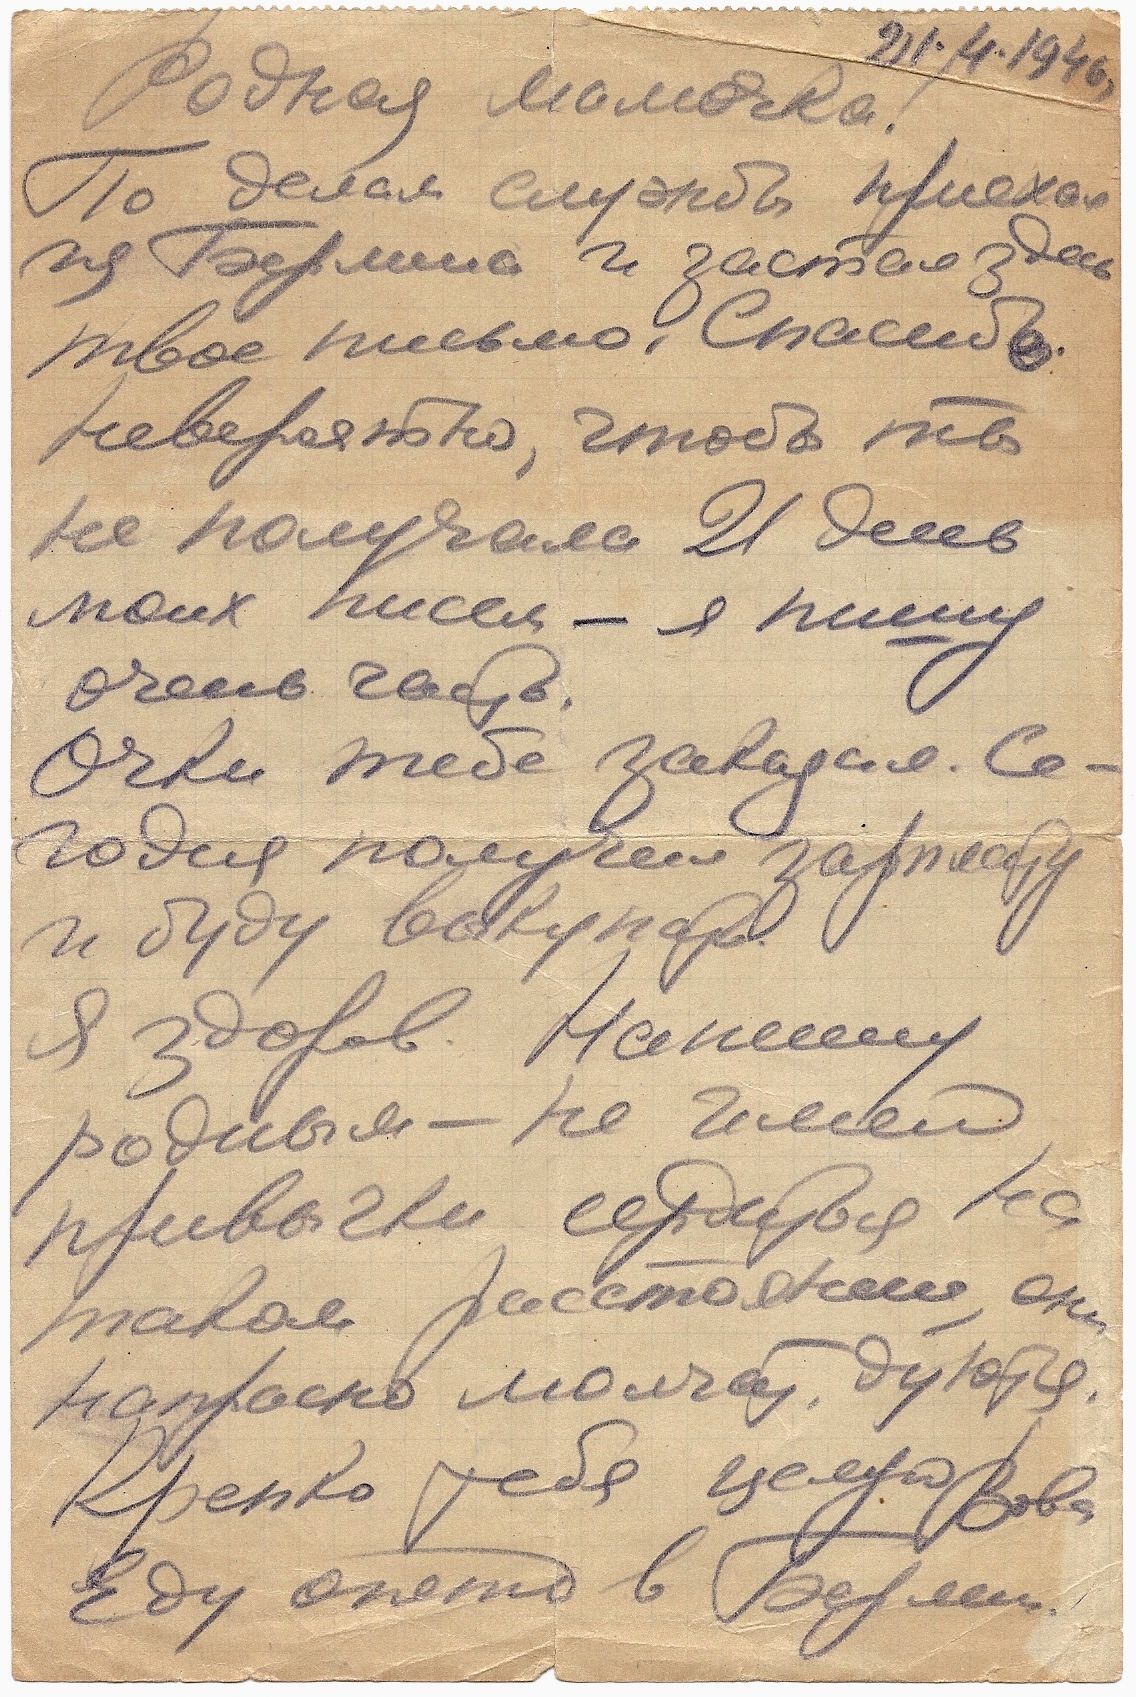 21.4.1946,
Родная мамочка!
По делам службы приехал
из Берлина и застал здесь
твое письмо. Спасибо.
Невероятно, чтобы ты
не получала 21 день
моих писем – я пишу
очень часто.
Очки тебе заказал. Се-
годня получил зарплату
и буду выкупать.
Я здоров. Напишу
родным – не имей
привычки сердиться на
таком расстоянии, они
напрасно молчат, дуются.
Крепко тебя целую Вова
Еду опять в Берлин.